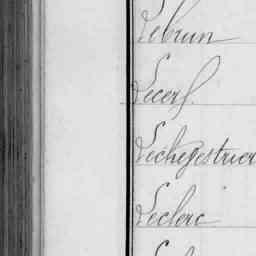 Lebrun
Lecerf.
Lechegestrier
Leclerc